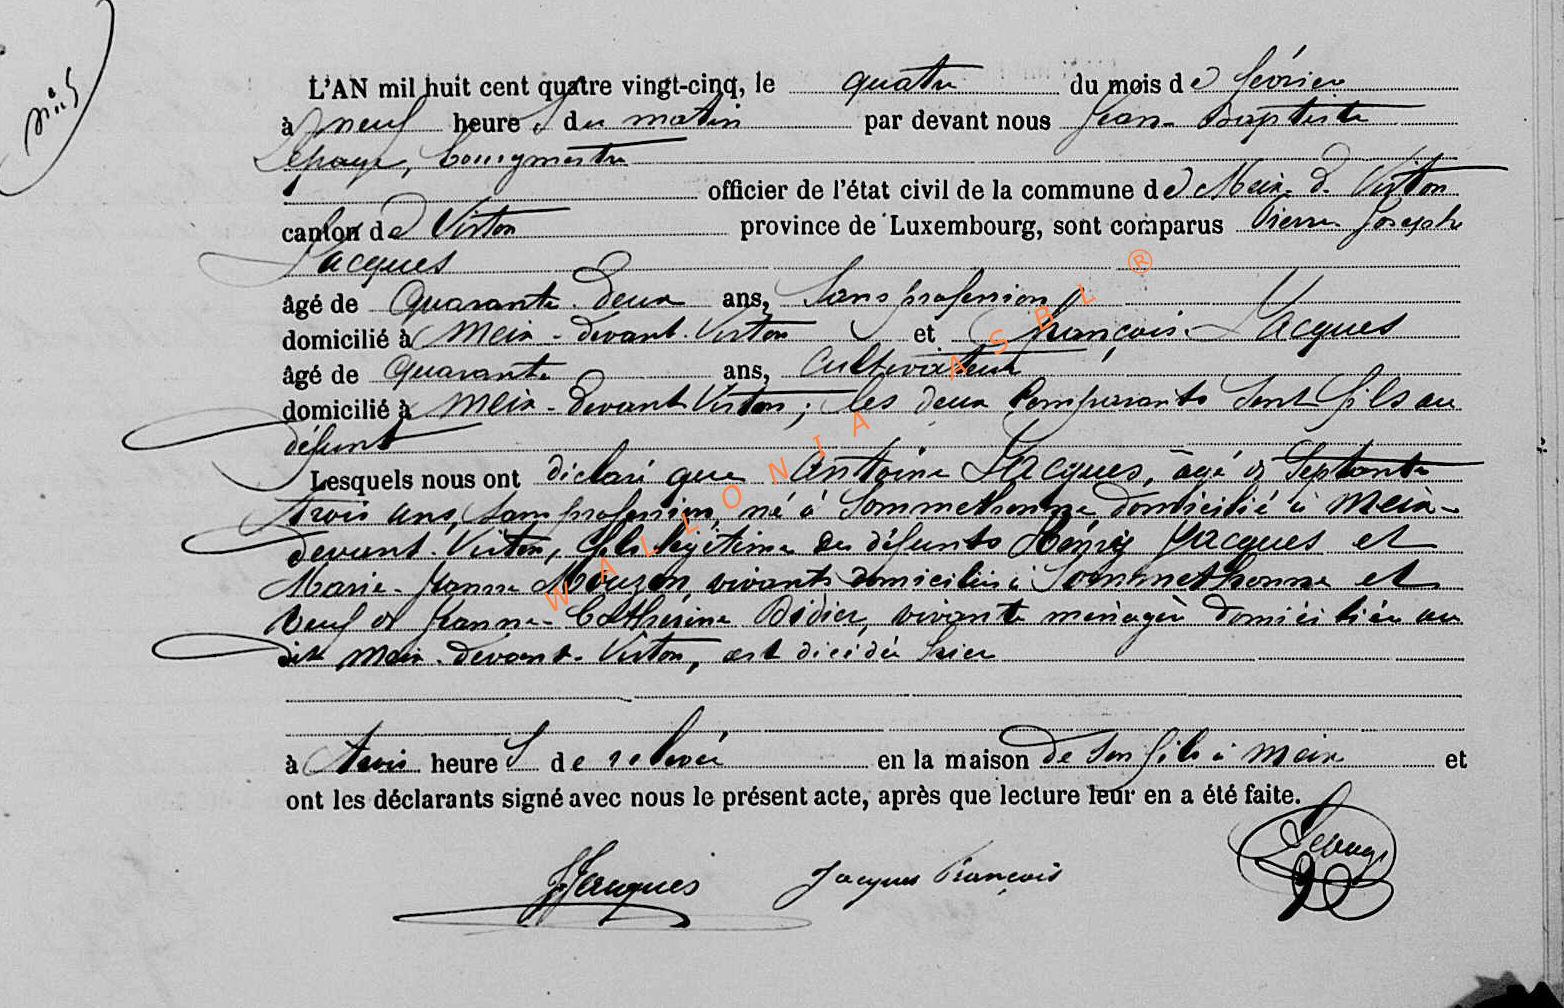 L'AN mil huit cent quatre vingt-cinq, le quatre du mois de février
à neuf heures du matin par devant nous Jean-Baptiste
Lepage, bourgmestre
officier de l'état civil de la commune de Meix-d-Virton
canton de Virton province de Luxembourg, sont comparus Pierre-Joseph
Jacques
âgé de quarante-deux ans, sans profession
domicilié à Meix-devant-Virton et François Jacques
âgé de quarante ans, cultivateur
domicilié à Meix-devant Virton; les deux comparants sont fils au
défunt
Lesquels nous ont déclaré que Antoine Jacques, âgé de septante
trois ans, sans profession, né à Sommethonne domicilié à Meix-
devant-Virton, fils légitime des défunts Henry Jacques et
Marie-Jeanne Mouzon, vivants domiciliés à Sommethonne et
veuf de Jeanne-Catherine Didier, vivante ménagère domiciliée au
dit Meix-devant-Virton, est décédé hier
à trois heures de relevée en la maison de son fils à Meix et
ont les déclarants signé avec nous le présent acte, après que lecture leur en a été faite.
JJacques Jacques François Lepage
WALLONIA ASBL ®